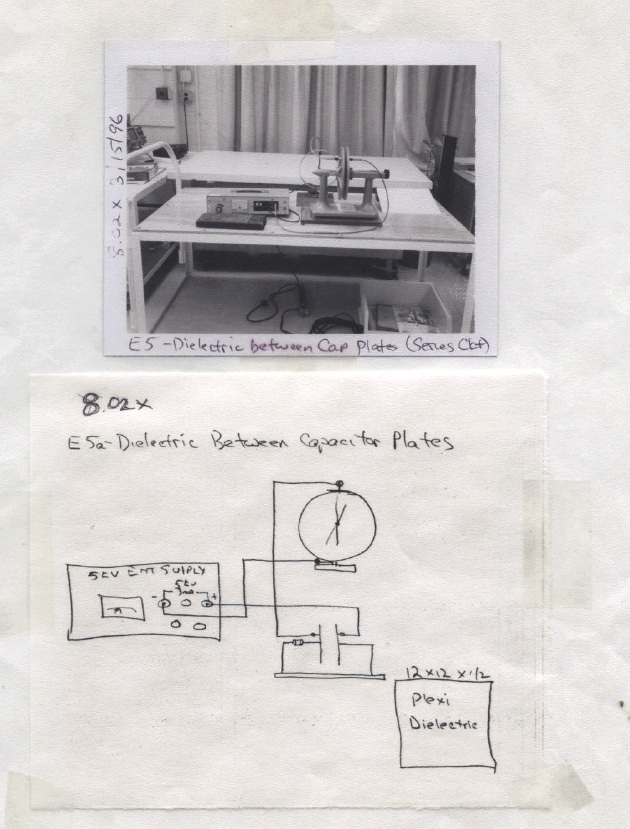 8.02x 3/15/96
E5-Dielectric between Cap Plates (Series Ckt)
8.02x
E5a-Dielectric Between Capacitor Plates
5KV EMT SUPPLY
5KV
- +
12 x 12 x 1/2
Plexi
Dielectric